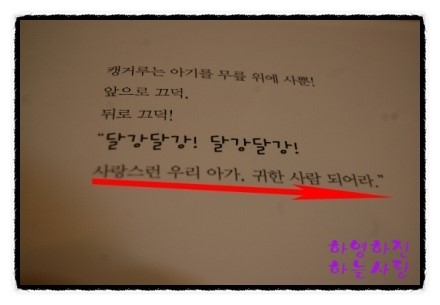 캥거루는 아기를 무릎 위에 사뿐!
앞으로 끄덕.
뒤로 끄덕!
“달강달강! 달강달강!
사랑스런 우리 아가. 귀한 사람 되어라.”
하영하진
하늘사탕